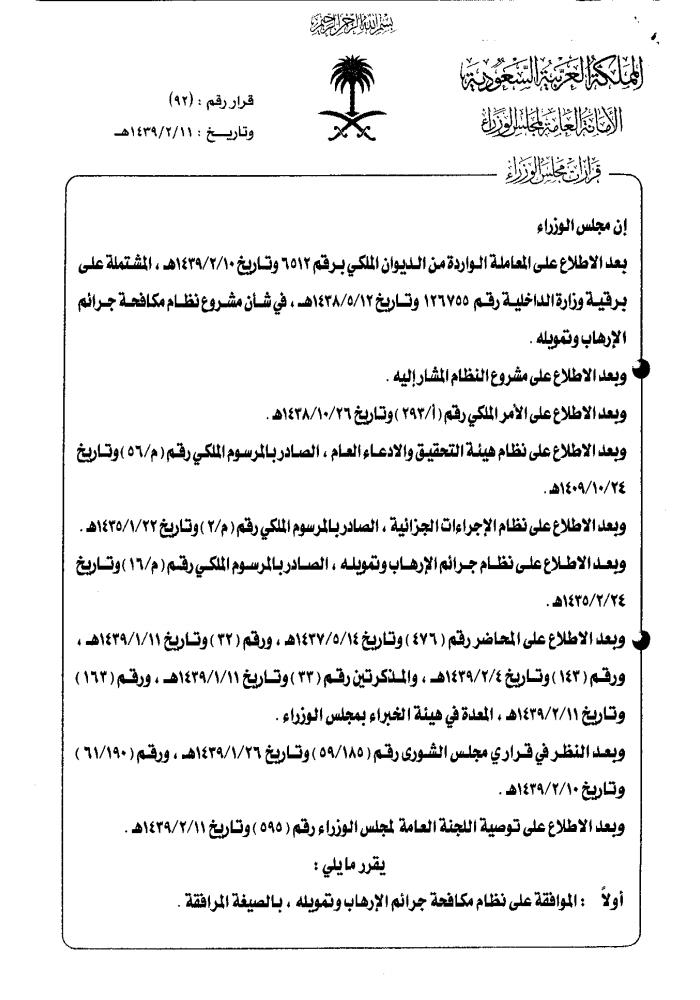 بسم الله الرحمن الرحيم
المملكة العربية السعودية
الأمانة العامة لمجلس الوزراء
قرار رقم : (٩٢)
وتاريخ : ١٤٣٩/٢/١١هـ
قرارات مجلس الوزراء
إن مجلس الوزراء
بعد الاطلاع على المعاملة الواردة من الديوان الملكي برقم ٦٥١٢ وتاريخ ١٤٣٩/٢/١٠هـ ، المشتملة على
برقية وزارة الداخلية رقم ١٢٦٧٥٥ وتاريخ ١٤٣٨/٥/١٢هـ ، في شأن مشروع نظام مكافحة جرائم
الإرهاب وتمويله .
وبعد الاطلاع على مشروع النظام المشار إليه .
وبعد الاطلاع على الأمر الملكي رقم (أ/٢٩٣) وتاريخ ١٤٣٨/١٠/٢٦هـ .
وبعد الاطلاع على نظام هيئة التحقيق والادعاء العام ، الصادر بالمرسوم الملكي رقم (م/٥٦) وتاريخ
١٤٠٩/١٠/٢٤هـ .
وبعد الاطلاع على نظام الإجراءات الجزائية ، الصادر بالمرسوم الملكي رقم (م/٢) وتاريخ ١٤٣٥/١/٢٢هـ .
وبعد الاطلاع على نظام جرائم الإرهاب وتمويله ، الصادر بالمرسوم الملكي رقم (م/١٦) وتاريخ
١٤٣٥/٢/٢٤هـ .
وبعد الاطلاع على المحاضر رقم (٤٧٦) وتاريخ ١٤٣٧/٥/١٤هـ ، ورقم (٣٢) وتاريخ ١٤٣٩/١/١١هـ ،
ورقم (١٤٣) وتاريخ ١٤٣٩/٢/٤هـ ، والمذكرتين رقم (٣٣) وتاريخ ١٤٣٩/١/١١هـ ، ورقم (١٦٣)
وتاريخ ١٤٣٩/٢/١١هـ ، المعدة في هيئة الخبراء بمجلس الوزراء .
وبعد النظر في قراري مجلس الشورى رقم (٥٩/١٨٥) وتاريخ ١٤٣٩/١/٢٦هـ ، ورقم (٦١/١٩٠)
وتاريخ ١٤٣٩/٢/١٠هـ .
وبعد الاطلاع على توصية اللجنة العامة لمجلس الوزراء رقم (٥٩٥) وتاريخ ١٤٣٩/٢/١١هـ .
يقرر ما يلي :
أولاً : الموافقة على نظام مكافحة جرائم الإرهاب وتمويله ، بالصيغة المرافقة .